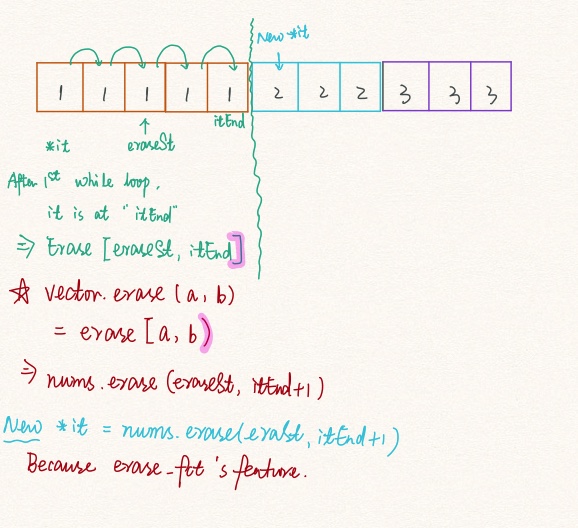 New *it
1 1 1 1 1 2 2 2 3 3 3
itEnd
*it eraseSt
After 1st while loop,
it is at "itEnd"
⇒ Erase [eraseSt, itEnd]
☆ vector.erase (a, b)
= erase [a, b)
⇒ nums.erase (eraseSt, itEnd+1)
New *it = nums.erase( , itEnd+1)
Because erase-fct 's feature.